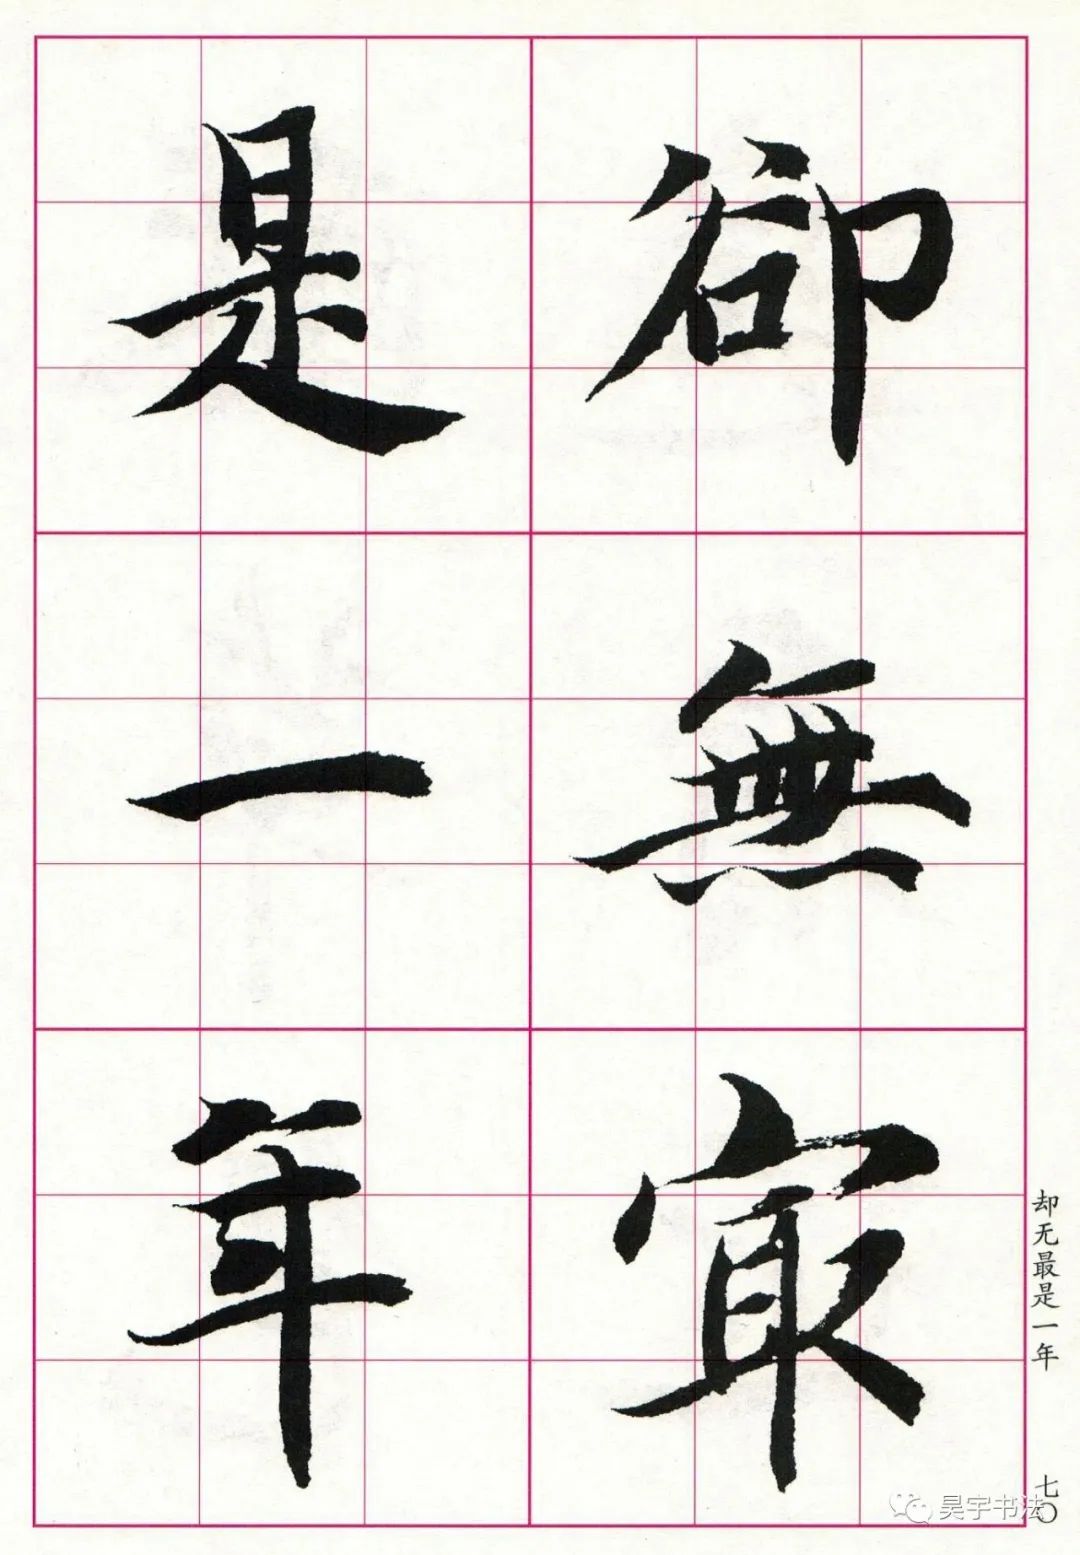 卻無冣
是一年
却无最是一年
七〇
昊宇书法